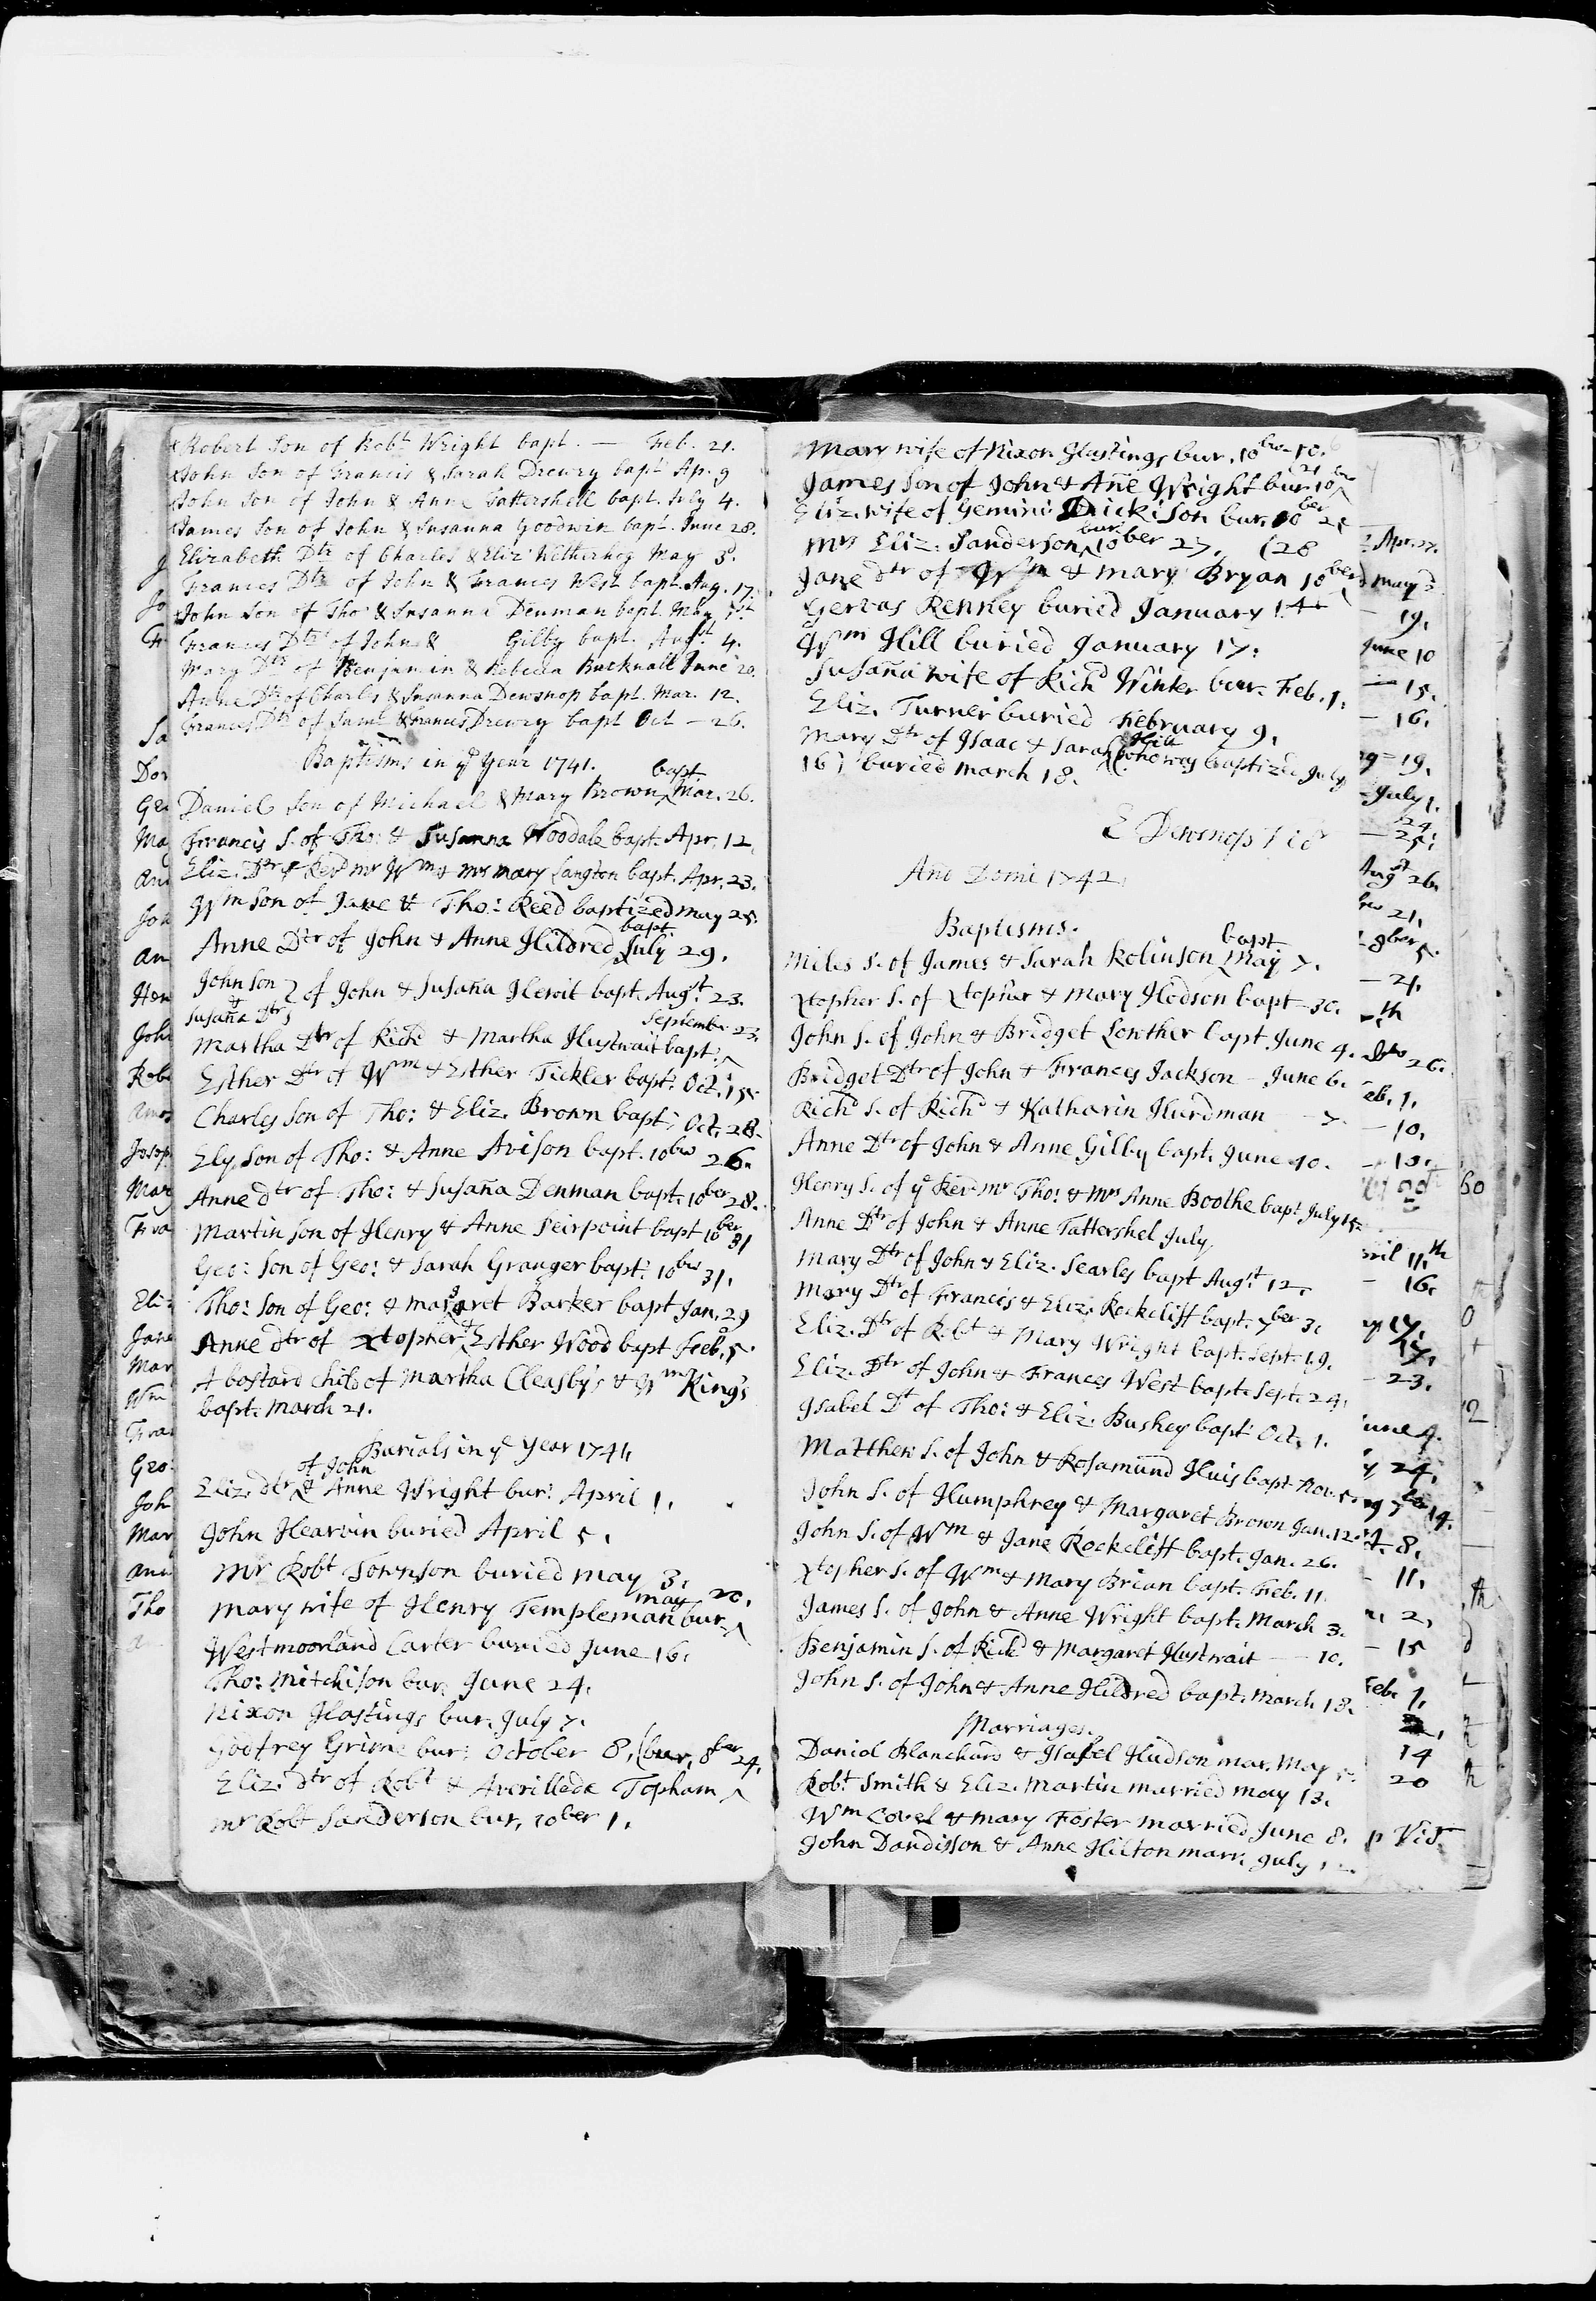 Robert Son of Robt Wright bapt. — Feb. 21.
John Son of Francis & Sarah Drewry bapt Ap. 9
John Son of John & Anne Tattershell bapt. July 4.
James Son of John & Susanna Goodwin bapt. June 28.
Elizabeth Dtr of Charles & Eliz May 3.
Frances Dtr of John & Frances West bapt. Aug. 17.
John Son of Tho: & Susanna Denman bapt. May
Frances Dtr of John & Gilby bapt. Augst 4.
Mary Dtr of Benjamin & Rebecca Bucknall June 20.
Anne Dtr of Charles & Susanna Dewsnop bapt. Mar. 12.
Frances Dtr of Saml & Frances Drewry bapt Oct — 26.
Baptisms in ye Year 1741.
Daniel Son of Michael & Mary Brown bapt Mar. 26.
Francis S. of Tho: & Susanna Woodale bapt. Apr. 12.
Eliz. Dtr of Revd mr Wm & Mrs mary Langton bapt. Apr. 23.
Wm Son of Jane & Tho: Reed baptized may 25.
Anne Dtr of John & Anne Hildred bapt July 29.
John Son
&
Susaña Dtr } of John & Susaña Hewit bapt. Augst 23.
Martha Dtr of Richd & Martha Hustwait bapt. September 23.
Esther Dtr of Wm & Esther Tickler bapt. Oct. 15.
Charles Son of Tho: & Eliz. Brown bapt. Oct. 28.
Ely Son of Tho: & Anne Avison bapt. 10ber 26.
Anne dtr of Tho: & Susaña Denman bapt. 10ber 28.
Martin Son of Henry & Anne Peirpoint bapt 10ber 31
Geo: Son of Geo: & Sarah Granger bapt. 10ber 31.
Tho: Son of Geo: & margaret Barker bapt Jan. 29
Anne dtr of Xtopher & Esther Wood bapt Feb. 5.
A bastard child of Martha Cleasby's & Wm King's
bapt. March 21.
Burials in ye Year 1741.
Eliz. dtr of John & Anne Wright bur. April 1.
John Hearvin buried April 5.
Mr Robt Townson buried may 3.
Mary wife of Henry Templeman bur. may 20.
Westmoorland Carter buried June 16.
Tho: Mitchison bur. June 24.
Nixon Hastings bur. July 7.
Godfrey Grime bur. October 8. (bur. 8ber 24.
Eliz. dtr of Robt & Averillede Topham
Mr Robt Sanderson bur. 10ber 1.
Mary wife of Nixon Hastings bur. 10ber 10.
James Son of John & Añe Wright bur. 21 10ber
Eliz. wife of Gemini Dickison bur. 10ber
Mrs Eliz. Sanderson bur. 10ber 27. (28
Jane dtr of Wm & Mary Bryan 10ber
Gervas Renney buried January 14
Wm Hill buried January 17.
Susaña wife of Richd Winter bur. Feb. 1.
Eliz. Turner buried February 9.
Mary Dtr of Isaac & Sarah Hill baptized July
16, buried March 18.
E Dewsnop
Ano Domi 1742.
Baptisms.
Miles S. of James & Sarah Robinson bapt May 7.
Xtopher S. of Xtopher & Mary Hodson bapt — 30.
John S. of John & Bridget Lowther bapt June 4.
Bridget Dtr of John & Frances Jackson — June 6.
Richd S. of Richd & Katharin Hurdman — 7.
Anne Dtr of John & Anne Gilby bapt. June 10.
Henry S. of ye Revd Mr Tho: & Mrs Anne Boothe bapt July 15.
Anne Dtr of John & Anne Tattershel July
Mary Dtr of John & Eliz. Searls bapt Augst 12.
Mary Dtr of Francis & Eliz. Rockcliff bapt. 7ber 3.
Eliz. Dtr of Robt & Mary Wright bapt. Sept. 19.
Eliz. Dtr of John & Frances West bapt. Sept. 24.
Isabel Dt of Tho: & Eliz. Bushey bapt. Oct. 1.
Matthew S. of John & Rosamund Huis bapt Nov. 5.
John S. of Humphrey & Margaret Brown Jan. 12.
John S. of Wm & Jane Rockcliff bapt. Jan. 26.
Xtopher S. of Wm & Mary Brian bapt. Feb. 11.
James S. of John & Anne Wright bapt. March 3.
Benjamin S. of Richd & Margaret Hustwait — 10.
John S. of John & Anne Hildred bapt. March 18.
Marriages.
Daniel Blanchard & Isabel Hudson mar. May
Robt Smith & Eliz. Martin married may 13.
Wm Covel & mary Foster married June 8.
John Dandisson & Anne Hilton marr. July